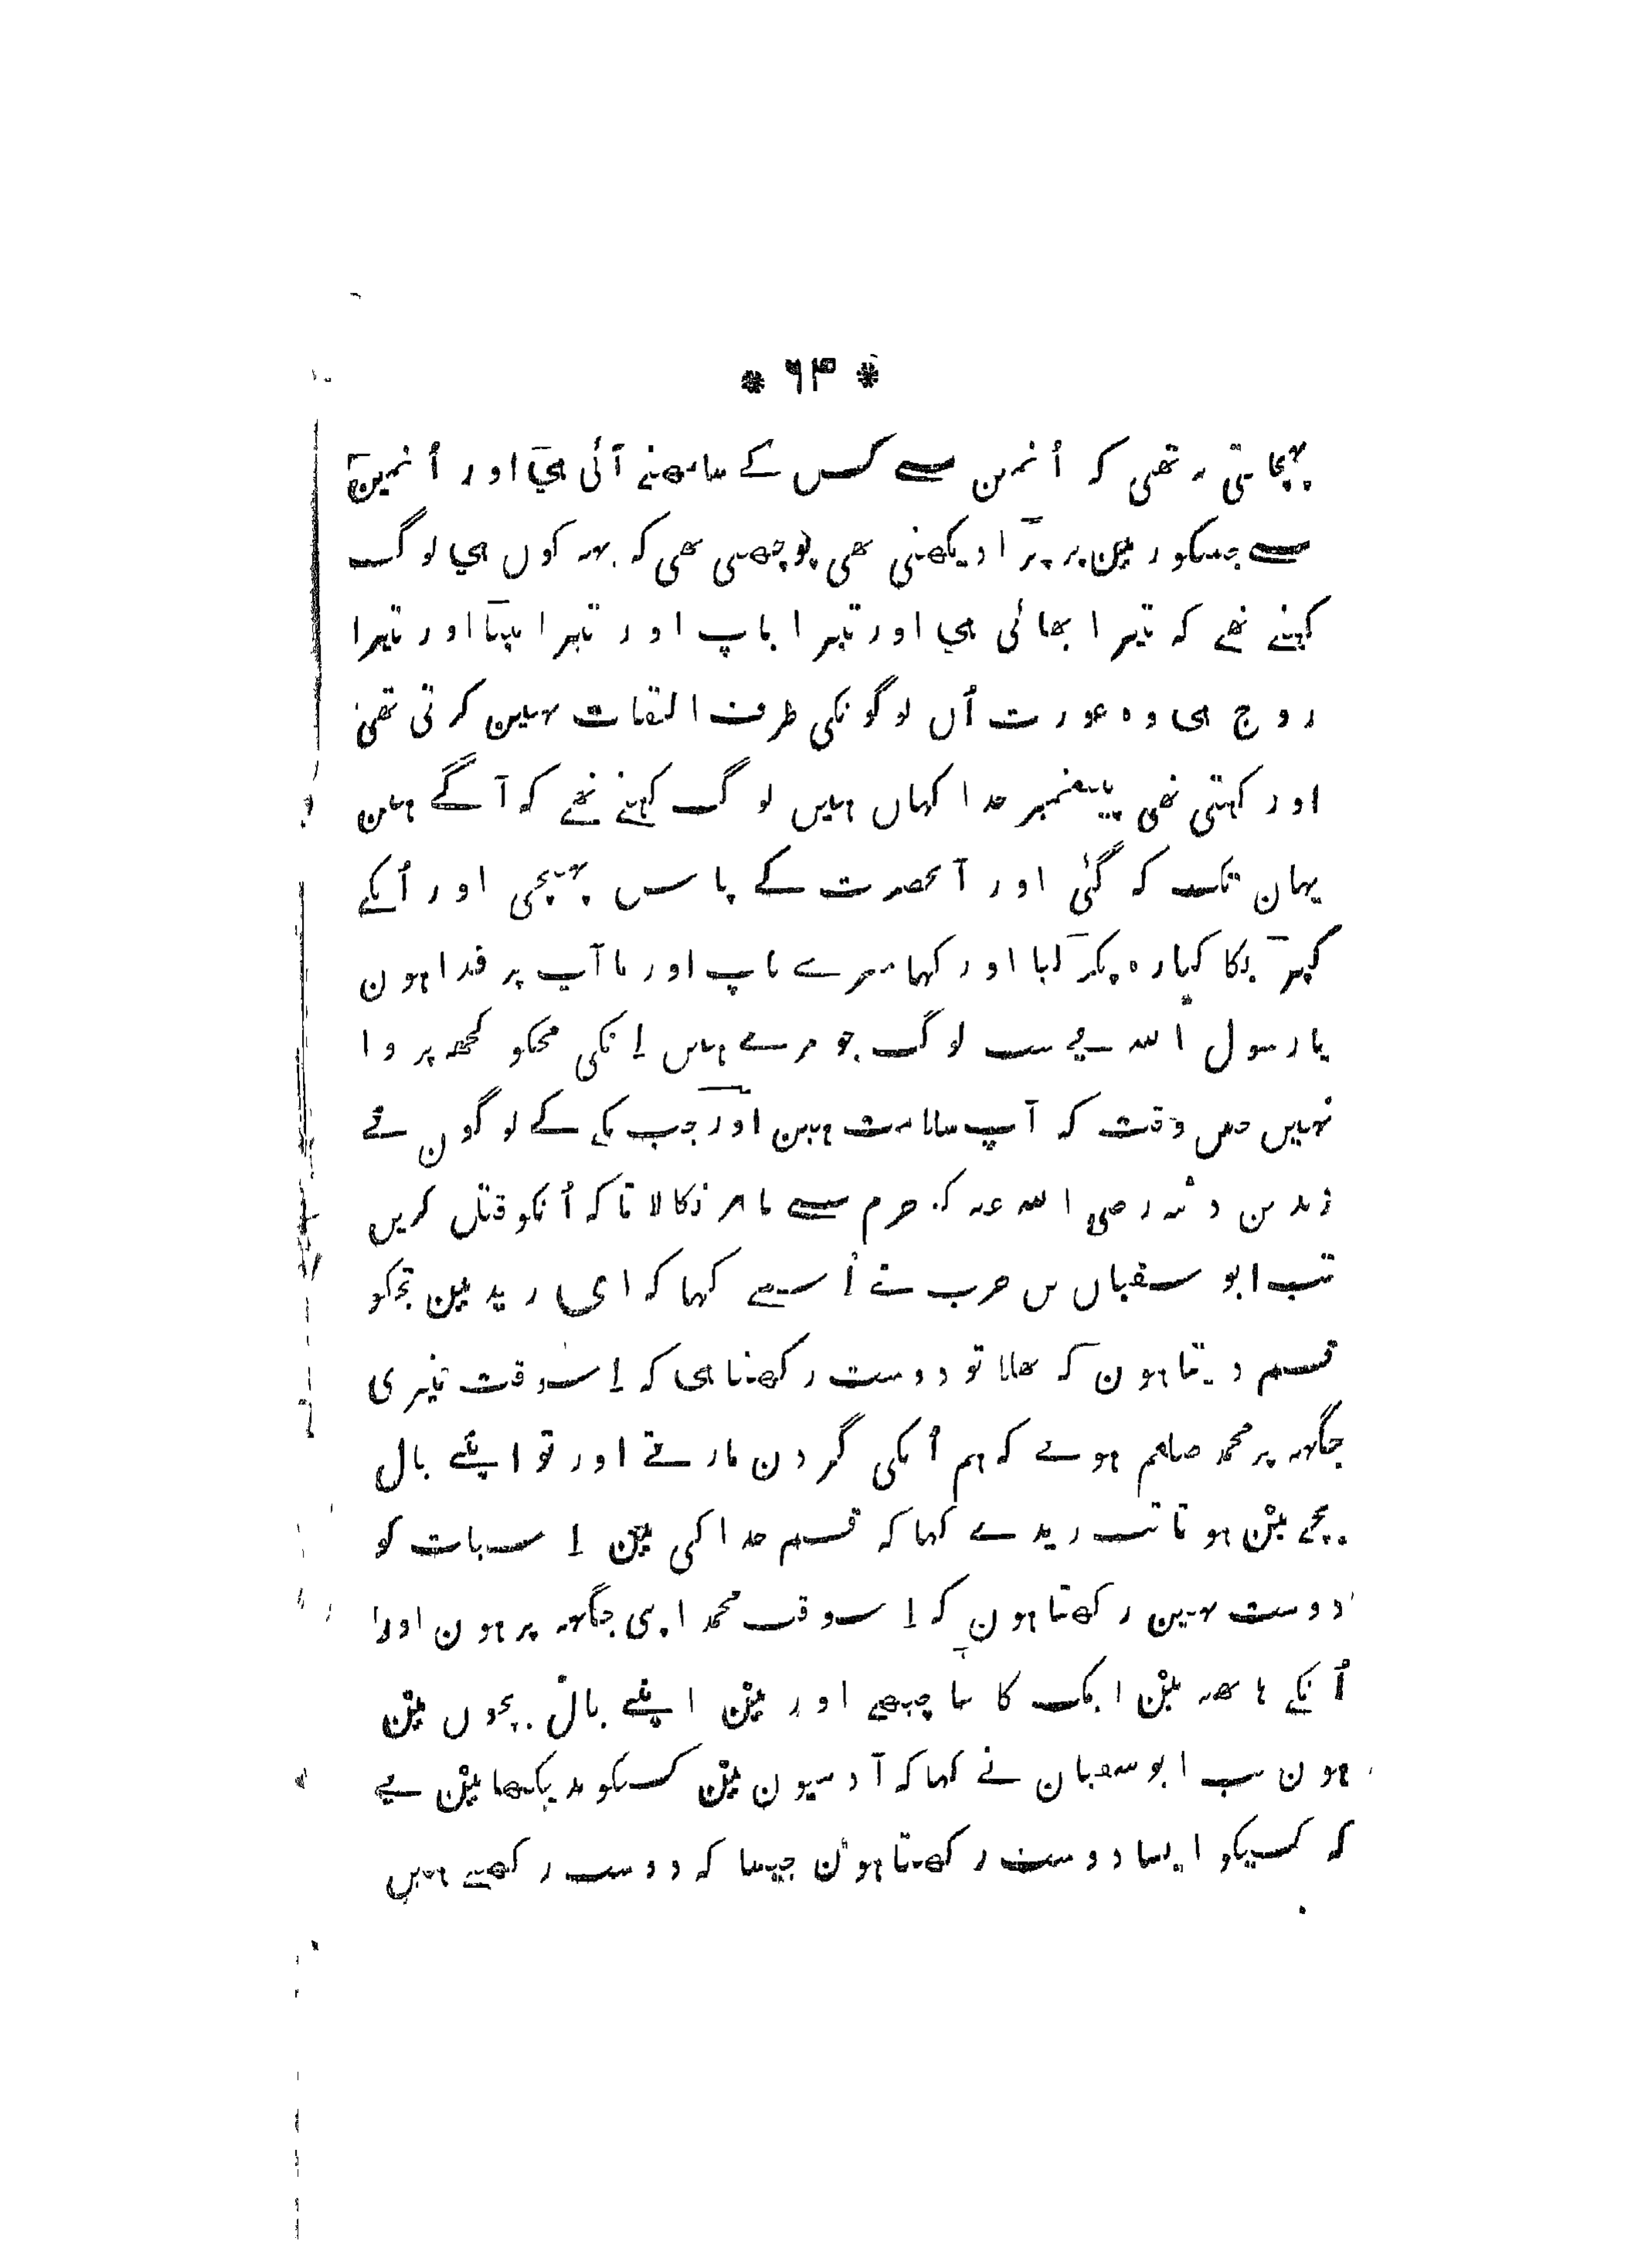 * ۶۳ *
پہچانتی نہ تھی کہ اُنمین سے کس کے سامھنے آئی ہی اور اُنمین
سے جسکو زمین پر پڑا دیکھتی تھی پوچھتی تھی کہ یہہ کون ہی لوگ
کہتے تھے کہ تیرا بھائی ہی اور تیرا باپ اور تیرا بیٹا اور تیرا
زوج ہی وہ عورت اُن لوگونکی طرف التفات نہین کرتی تھی
اور کہتی تھی پیغمبر خدا کہاں ہیں لوگ کہتے تھے کہ آگے ہین
یہان تک کہ گئی اور آنحضرت کے پاس پہنچی اور اُنکے
کپڑیکا کنارہ پکڑ لیا اور کہا میرے باپ اور ما آپ پر فدا ہون
یا رسول اللہ یے سب لوگ جو مرے ہیں اِنکی مجکو کچھہ پروا
نہیں جس وقت کہ آپ سلامت ہین اور جب مکے کے لوگون نے
زید بن دثنہ رضی اللہ عنہ کو حرم سے باہر نکالا تاکہ اُنکو قتل کریں
تب ابو سفیان بن حرب نے اُسے کہا کہ ای زید مین تجکو
قسم دیتا ہون کہ بھلا تو دوست رکھتا ہی کہ اِسوقت تیری
جگہہ پر محمد صلعم ہوتے کہ ہم اُنکی گردن مارتے اور تو اپنے بال
بچے مین ہوتا تب زید نے کہا کہ قسم خدا کی مین اِس بات کو
دوست نہین رکھتا ہون کہ اِسوقت محمد اپنی جگہہ پر ہون اور
اُنکے ہاتھہ مین ایک کانٹا چبھے اور مین اپنے بال بچوں مین
ہون تب ابو سفیان نے کہا کہ آدمیون مین کسیکو ندیکھا مین نے
کہ کسیکو ایسا دوست رکھتا ہون جیسا کہ دوست رکھتے ہیں